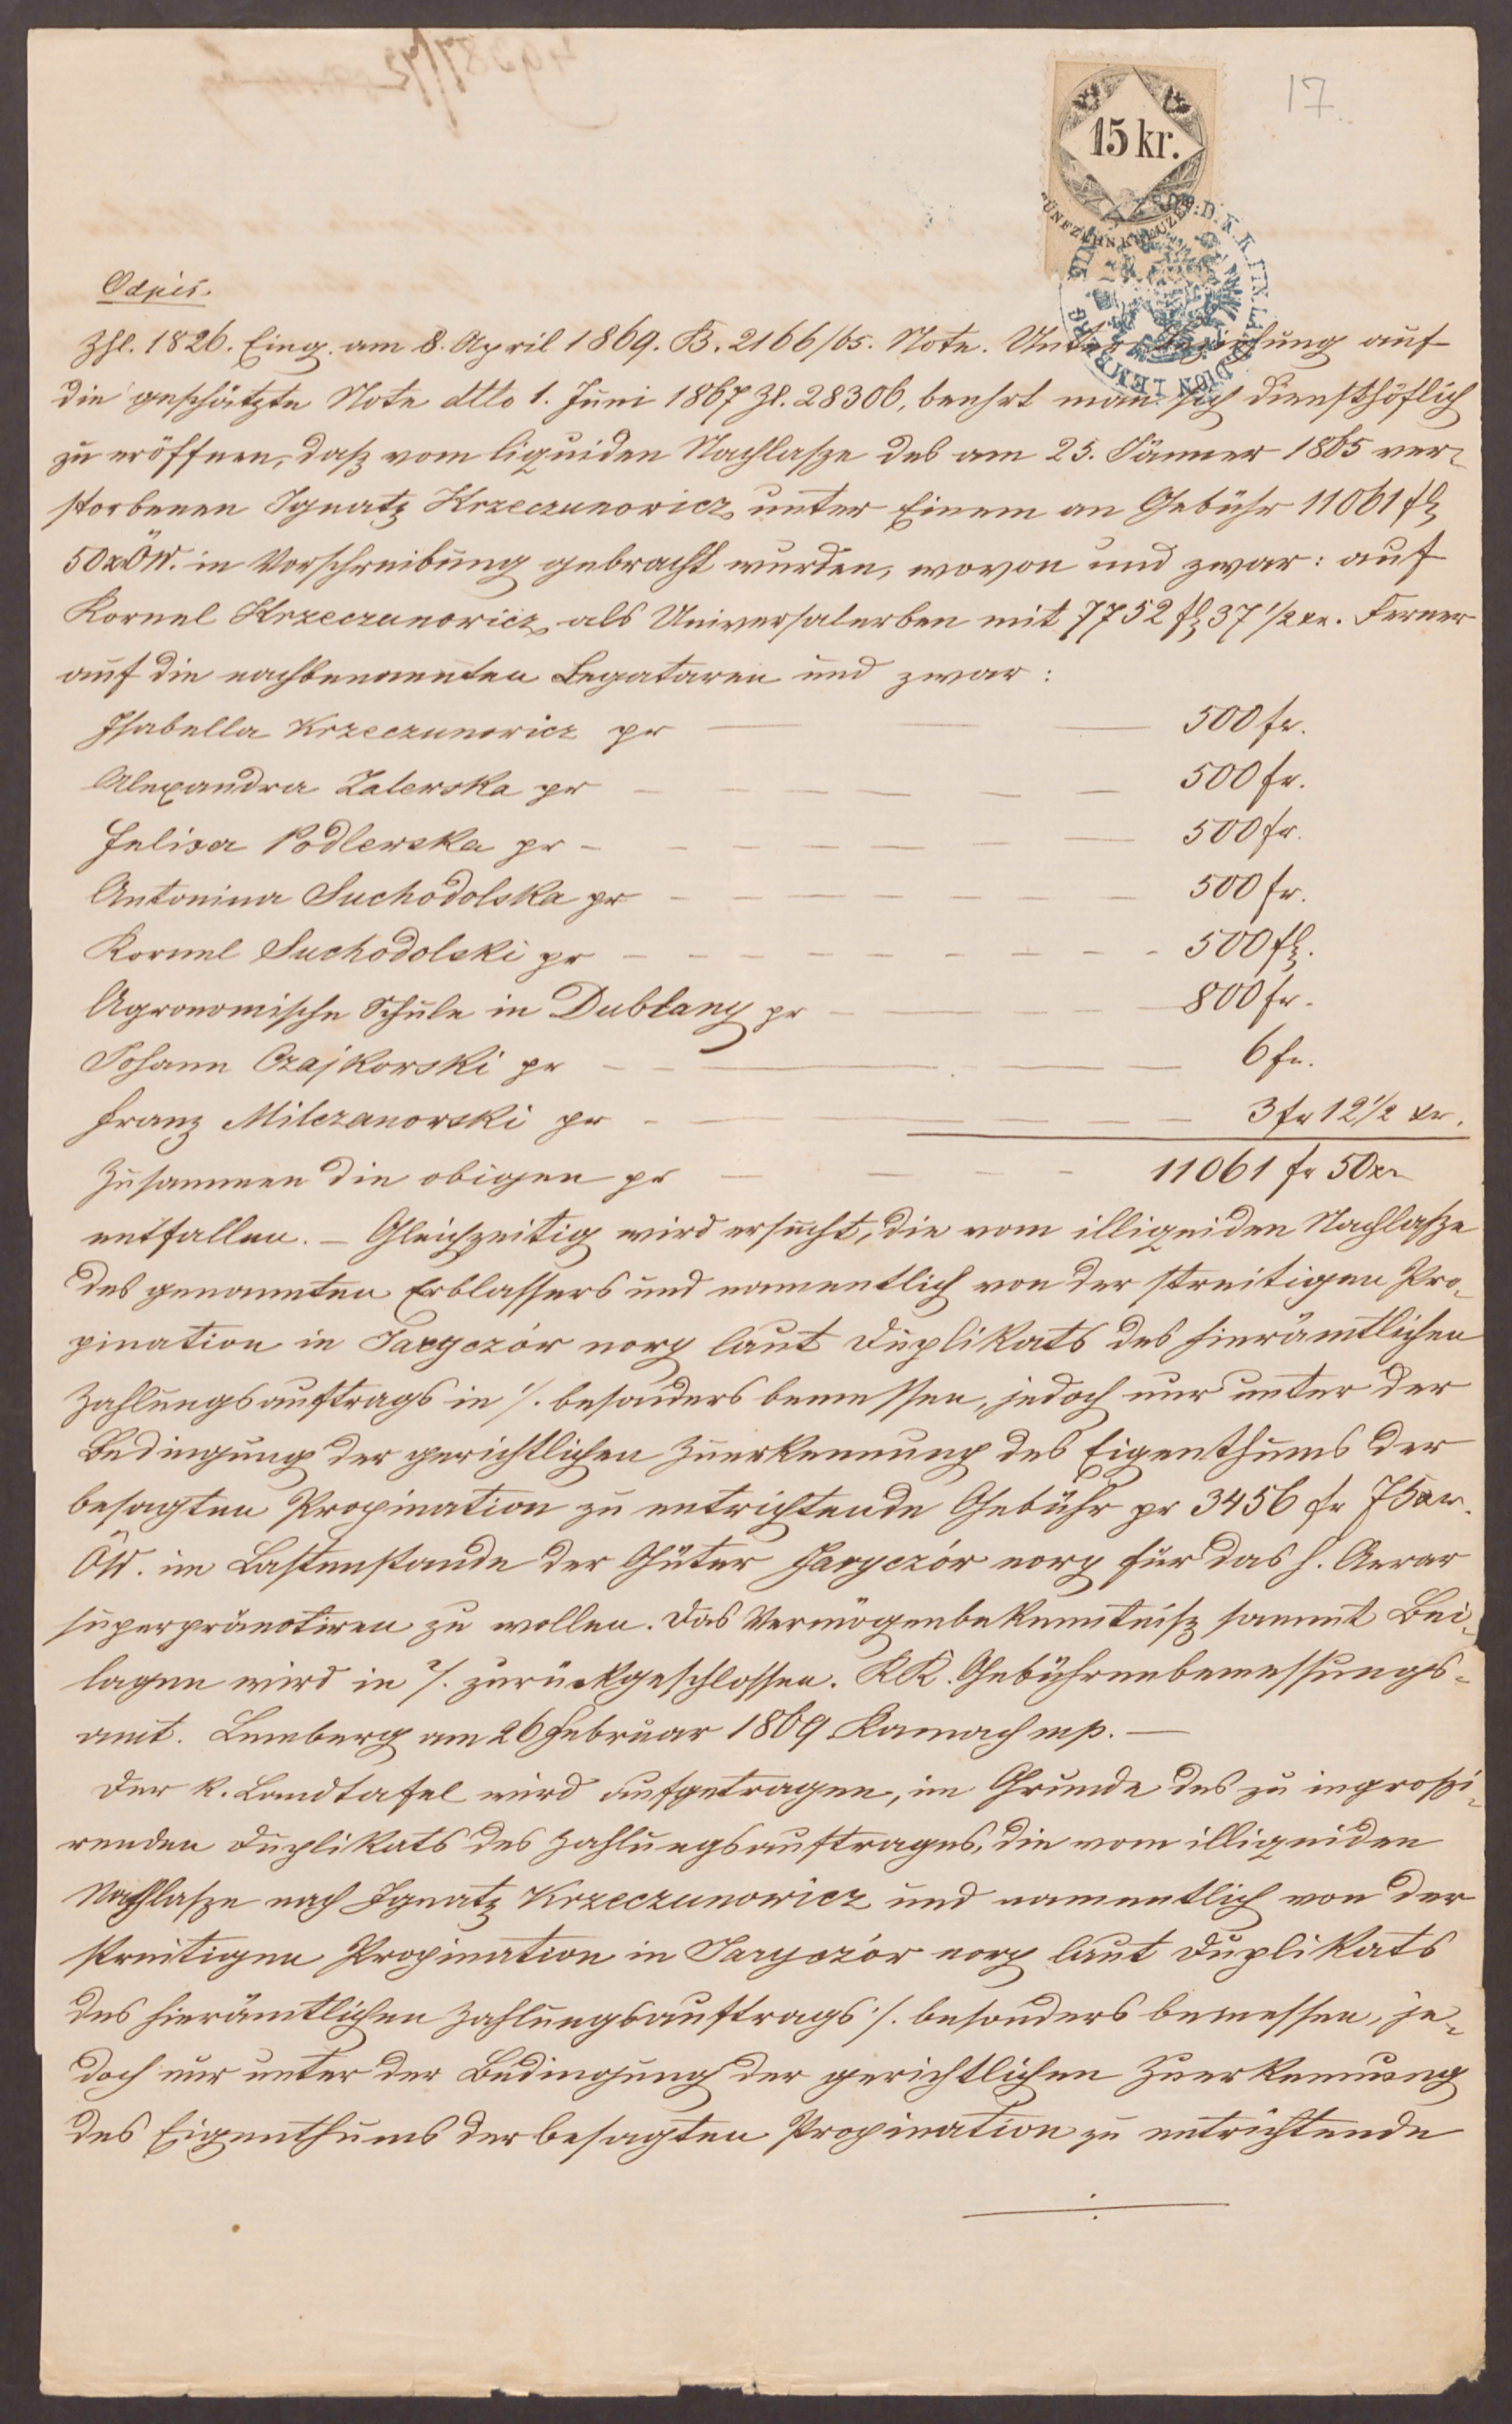 17
15 kr.
FÜNFZEHN KREUZER
LEMBERG
Odpis.
Zhl. 1826. Eing. am 8. April 1869. B. 2166/65. Note. Unter Beziehung auf
die geschätzte Note dtto 1. Juni 1867 Zl. 28306, beehrt man sich diensthöflich
zu eröffnen, daß vom liquiden Nachlaße des am 25. Jänner 1865 ver-
storbenen Ignatz Krzeczunowicz unter Einem an Gebühr 11061 fl
50 xr ÖW. in Vorschreibung gebracht wurden, wovon und zwar: auf
Kornel Krzeczunowicz als Universalerben mit 7752 fl 37 1/2 xr. Ferner
auf die nachbenannten Legataren und zwar:
Isabella Krzeczunowicz pr — 500 fr.
Alexandra Zalewska pr — 500 fr.
Felixa Podlewska pr — 500 fr.
Antonina Suchodolska pr — 500 fr.
Kornel Suchodolski pr — 500 fl.
Agronomische Schule in Dublany pr — 800 fr.
Johann Czajkowski pr — 6 fr.
Franz Milczanowski pr — 3 fr 12 1/2 xr.
Zusammen die obigen pr — 11061 fr 50 xr
entfallen. — Gleichzeitig wird ersucht, die vom illiquiden Nachlaße
des genannten Erblassers und namentlich von der streitigen Pro-
pination in Jaryczór nory laut Duplikats des hierämtlichen
Zahlungsauftrags in 1/. besonders bemessen, jedoch nur unter der
Bedingung der gerichtlichen Zuerkennung des Eigenthums der
besagten Propination zu entrichtende Gebühr pr 3456 fr 75 xr.
ÖW. im Lastenstande der Güter Jaryczór nory für das h. Aerar
superpränotiren zu wollen. Das Vermögenbekenntniß sammt Bei-
lagen wird in 2/. zurückgeschlossen. KK. Gebührenbemessungs-
amt. Lemberg am 26 Februar 1869 Kamach mp. —
Der k. Landtafel wird aufgetragen, im Grunde des zu ingroßi-
renden Duplikats des Zahlungsauftrages, die vom illiquiden
Nachlaße nach Ignatz Krzeczunowicz und namentlich von der
streitigen Propination in Jaryczór nory laut Duplikats
des hierämtlichen Zahlungsauftrags 1/. besonders bemessen, je-
doch nur unter der Bedingung der gerichtlichen Zuerkennung
des Eigenthums der besagten Propination zu entrichtende